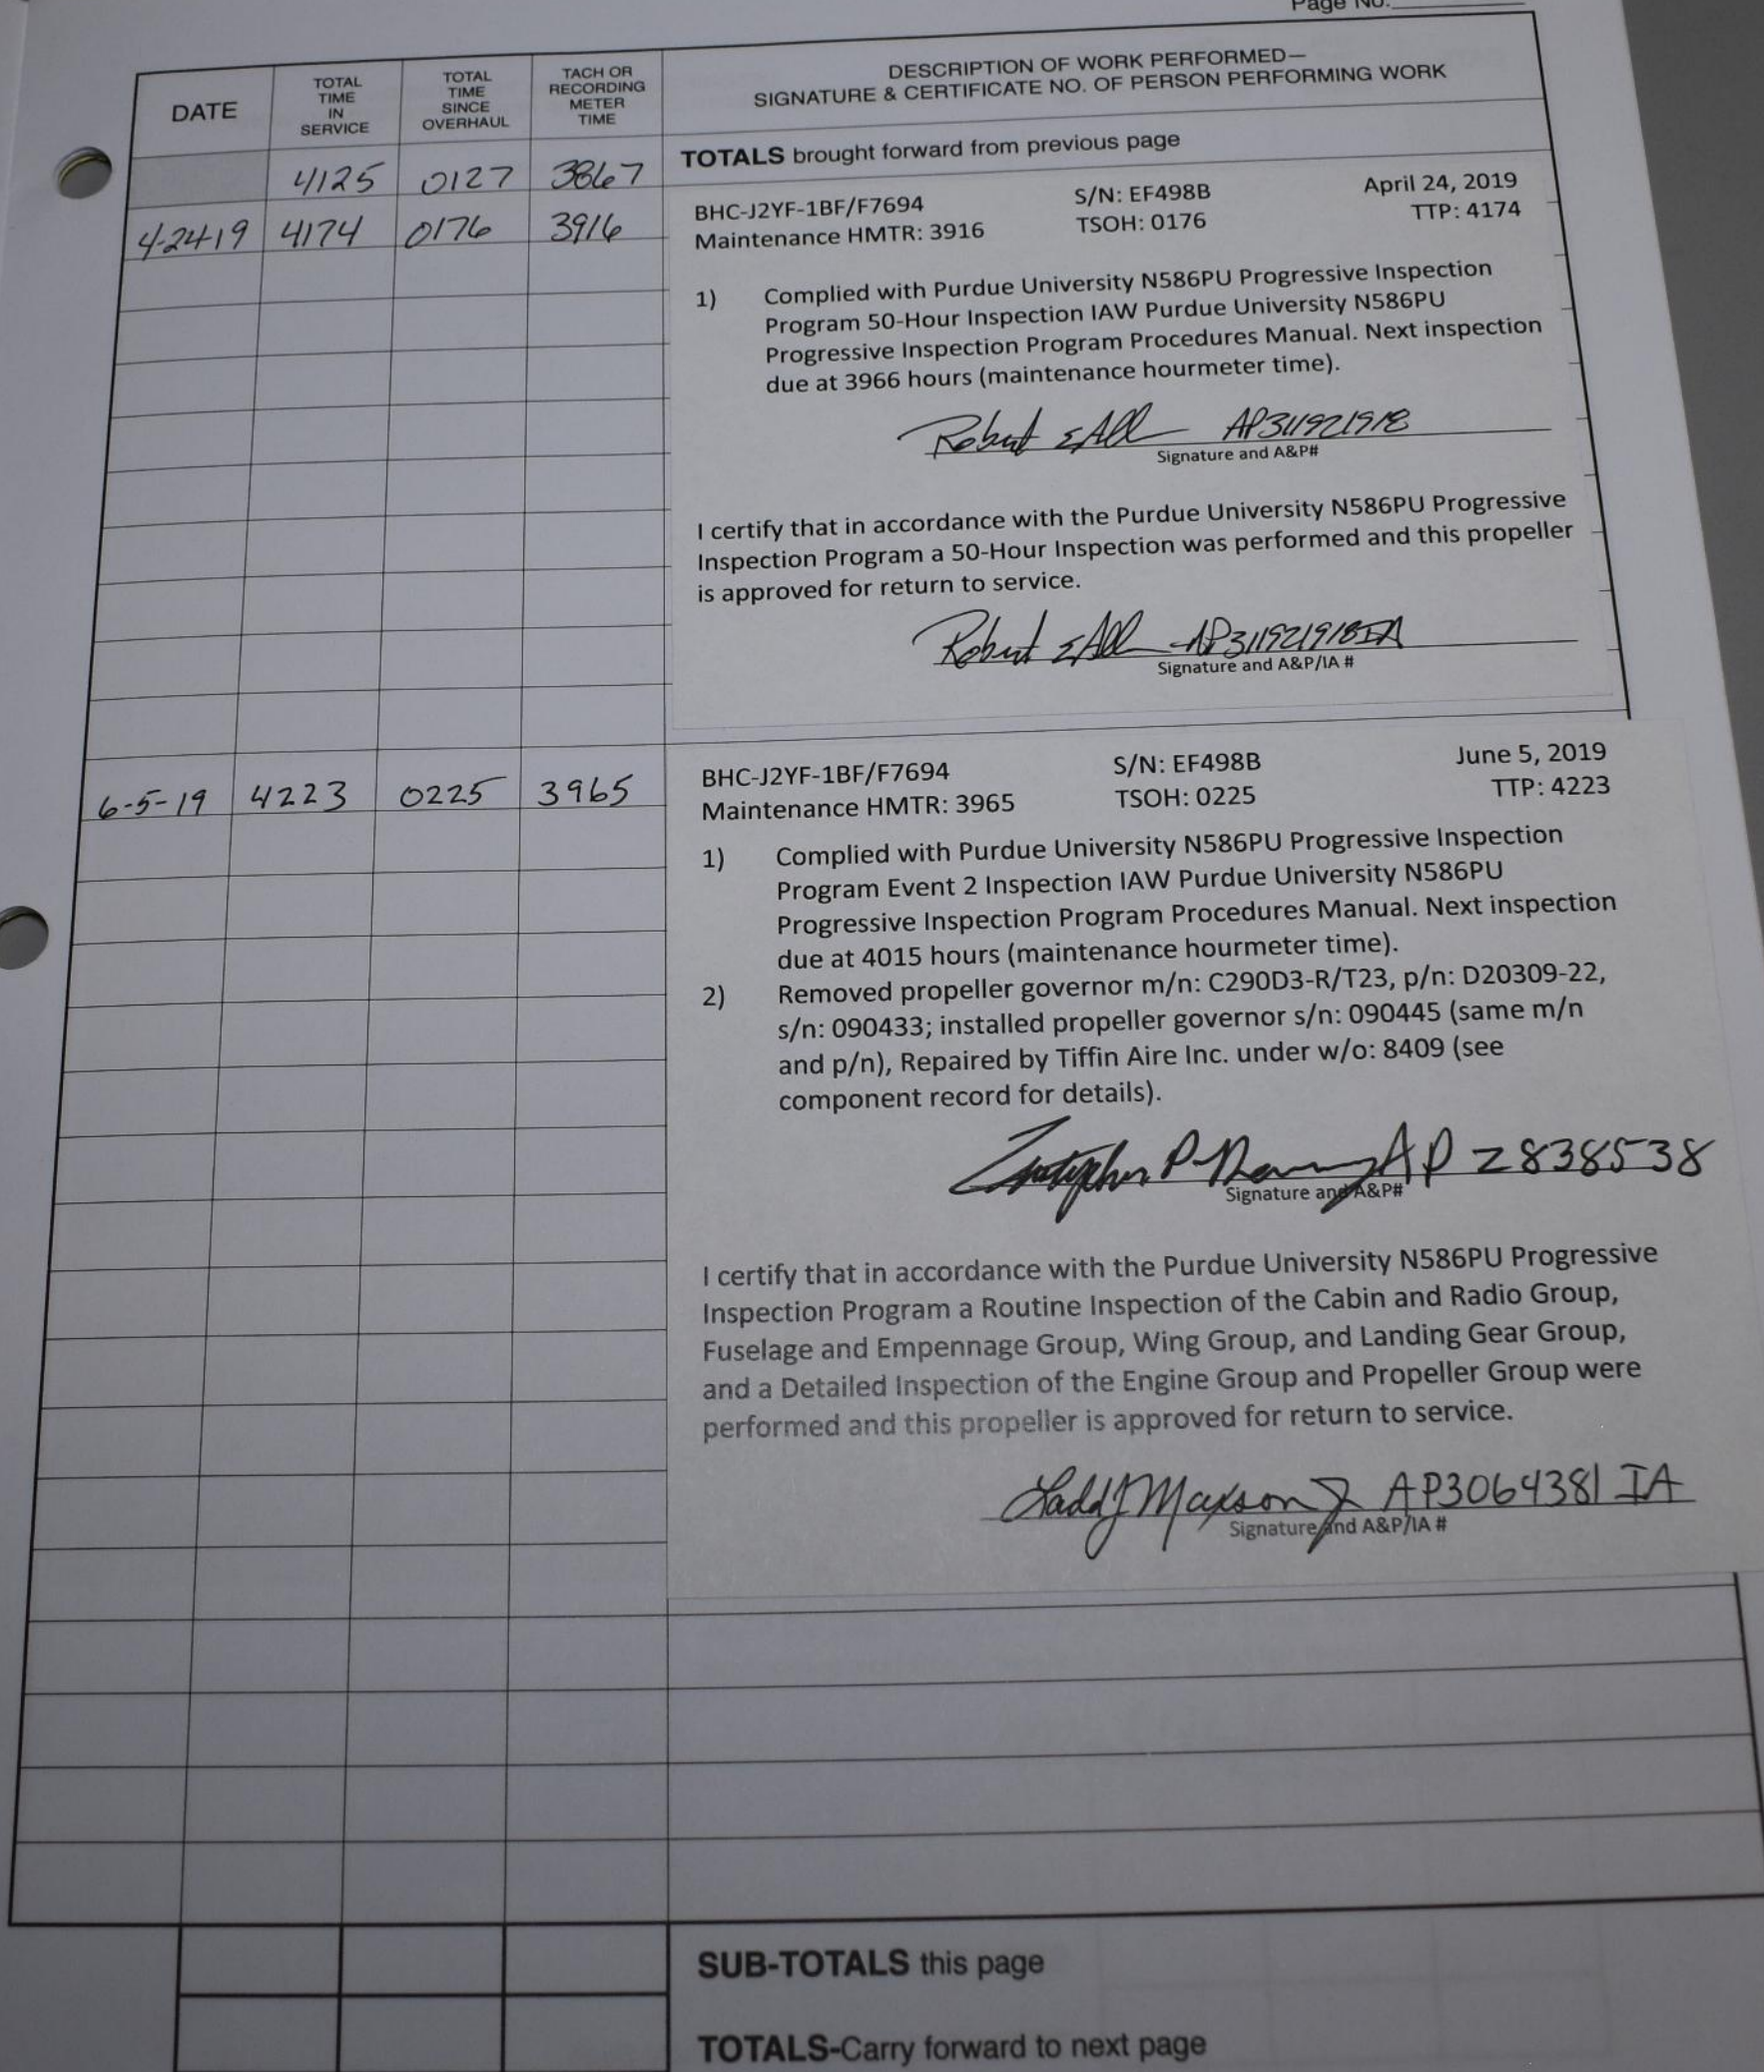 Page No.
DATE
TOTAL
TIME
IN
SERVICE
TOTAL
TIME
SINCE
OVERHAUL
TACH OR
RECORDING
METER
TIME
DESCRIPTION OF WORK PERFORMED—
SIGNATURE & CERTIFICATE NO. OF PERSON PERFORMING WORK
4125 0127 3867 TOTALS brought forward from previous page
4-24-19 4174 0176 3916
BHC-J2YF-1BF/F7694 S/N: EF498B April 24, 2019
Maintenance HMTR: 3916 TSOH: 0176 TTP: 4174
1) Complied with Purdue University N586PU Progressive Inspection
Program 50-Hour Inspection IAW Purdue University N586PU
Progressive Inspection Program Procedures Manual. Next inspection
due at 3966 hours (maintenance hourmeter time).
Robert
Signature and A&P#
I certify that in accordance with the Purdue University N586PU Progressive
Inspection Program a 50-Hour Inspection was performed and this propeller
is approved for return to service.
Robert
Signature and A&P/IA #
6-5-19 4223 0225 3965
BHC-J2YF-1BF/F7694 S/N: EF498B June 5, 2019
Maintenance HMTR: 3965 TSOH: 0225 TTP: 4223
1) Complied with Purdue University N586PU Progressive Inspection
Program Event 2 Inspection IAW Purdue University N586PU
Progressive Inspection Program Procedures Manual. Next inspection
due at 4015 hours (maintenance hourmeter time).
2) Removed propeller governor m/n: C290D3-R/T23, p/n: D20309-22,
s/n: 090433; installed propeller governor s/n: 090445 (same m/n
and p/n), Repaired by Tiffin Aire Inc. under w/o: 8409 (see
component record for details).
P AP 2838538
Signature and A&P#
I certify that in accordance with the Purdue University N586PU Progressive
Inspection Program a Routine Inspection of the Cabin and Radio Group,
Fuselage and Empennage Group, Wing Group, and Landing Gear Group,
and a Detailed Inspection of the Engine Group and Propeller Group were
performed and this propeller is approved for return to service.
Ladd J Maxson Jr AP3064381 IA
Signature and A&P/IA #
SUB-TOTALS this page
TOTALS-Carry forward to next page